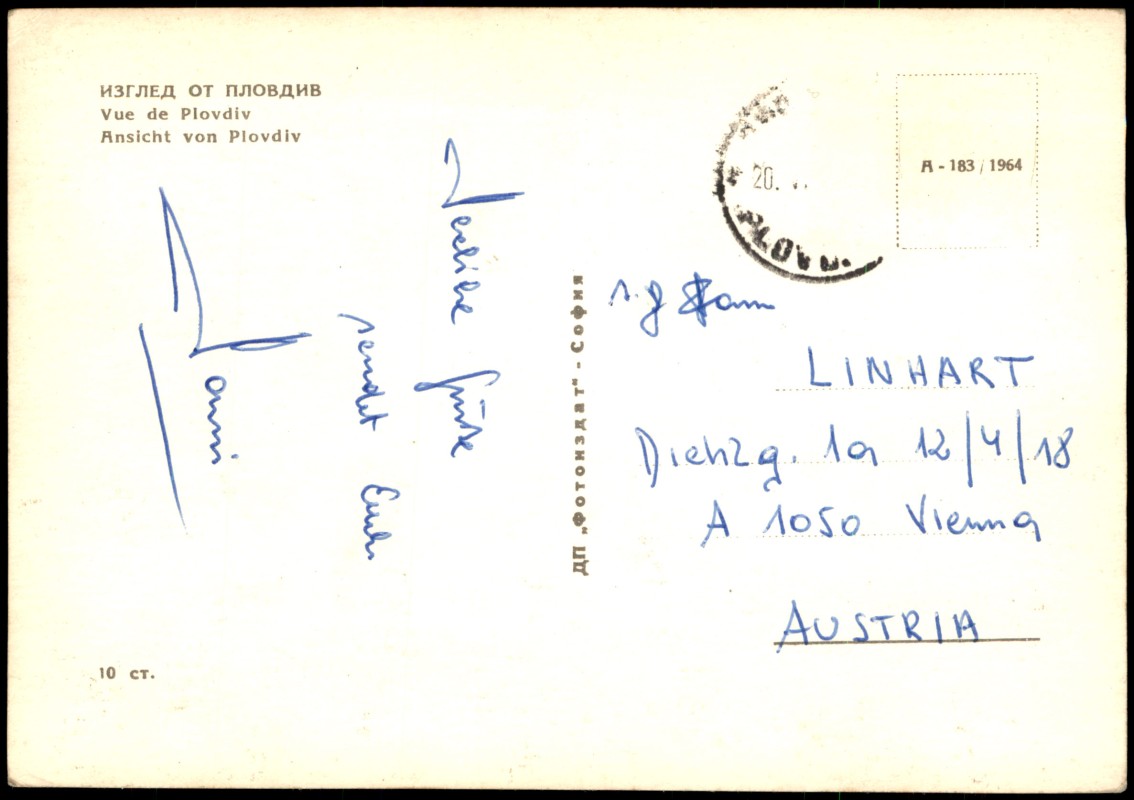 ИЗГЛЕД ОТ ПЛОВДИВ
Vue de Plovdiv
Ansicht von Plovdiv
Grüße
sendet Euch
Hanni
ДП „Фотоиздат" - София
20.
PLOVD.
A - 183 / 1964
LINHART
Diehlg. 1a 12/4/18
A 1050 Vienna
AUSTRIA
10 ст.